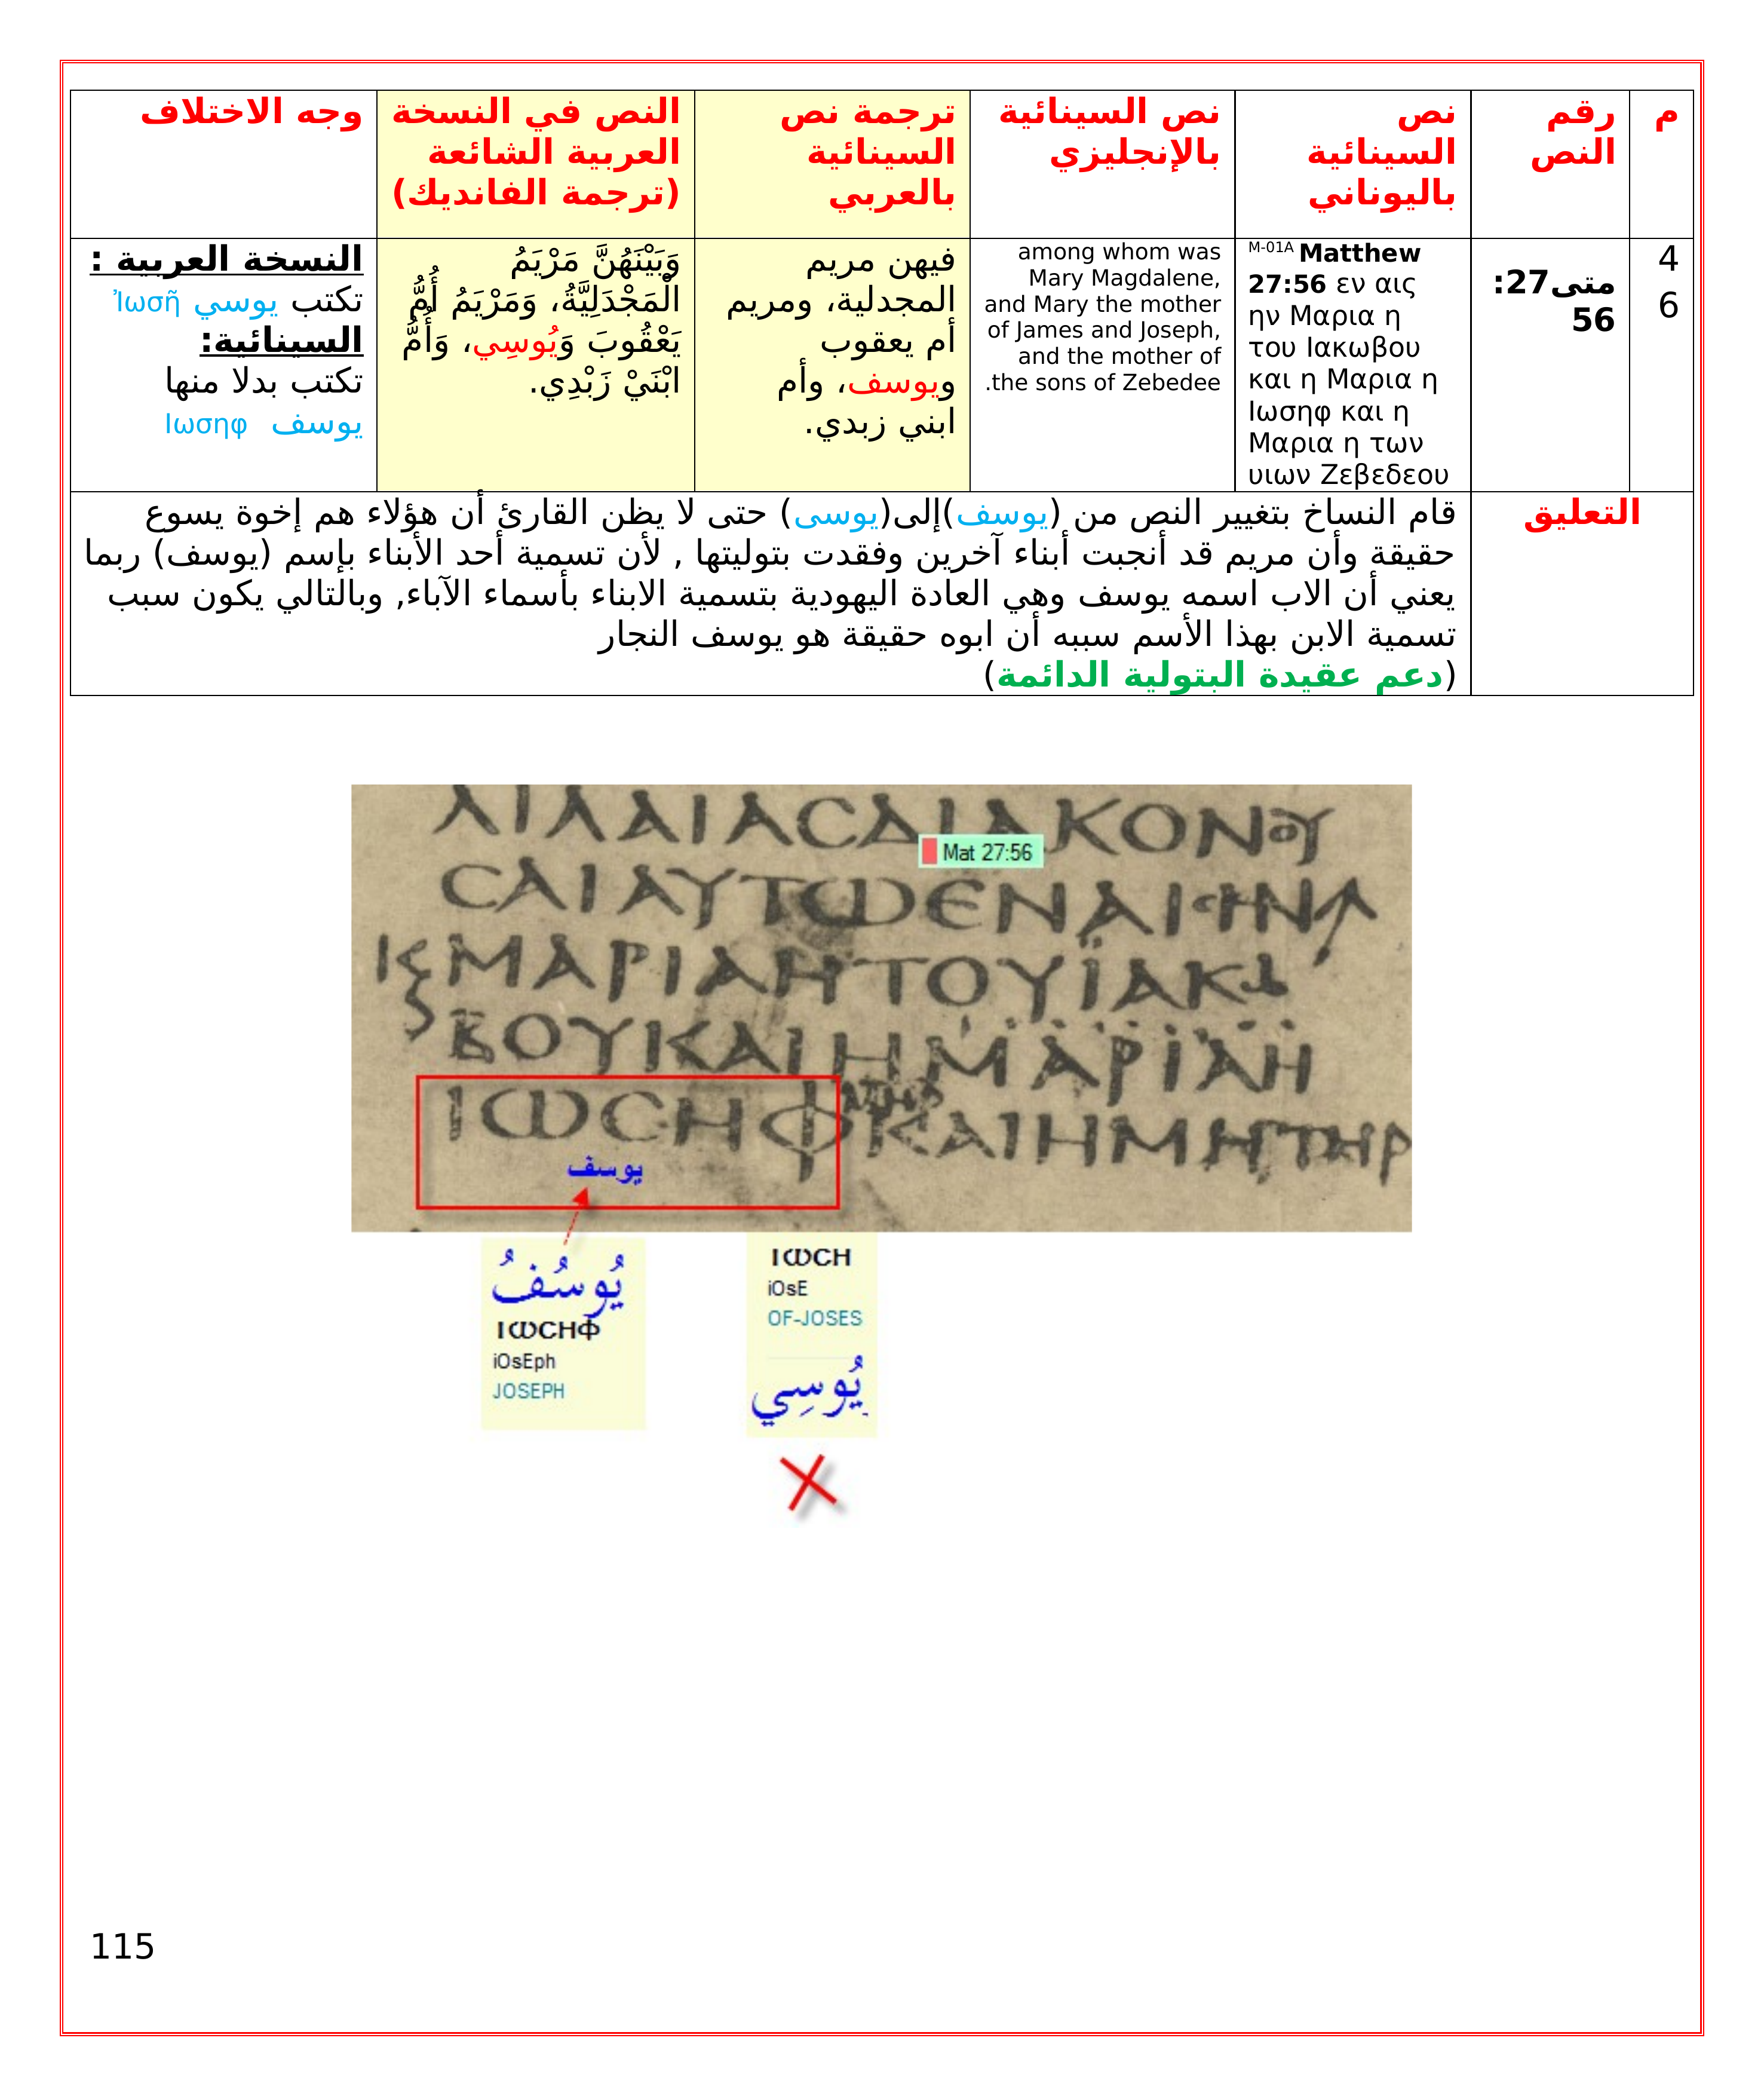 م
رقم
النص
نص
السينائية
باليوناني
نص السينائية
بالإنجليزي
ترجمة نص
السينائية
بالعربي
النص في النسخة
العربية الشائعة
(ترجمة الفانديك)
وجه الاختلاف
4
6
متى27:
56
M-01A Matthew
27:56 εν αις
ην Μαρια η
του Ιακωβου
και η Μαρια η
Ιωσηφ και η
Μαρια η των
υιων Ζεβεδεου
among whom was
Mary Magdalene,
and Mary the mother
of James and Joseph,
and the mother of
the sons of Zebedee.
فيهن مريم
المجدلية، ومريم
أم يعقوب
ويوسف، وأم
ابني زبدي.
وَبَيْنَهُنَّ مَرْيَمُ
الْمَجْدَلِيَّةُ، وَمَرْيَمُ أُمُّ
يَعْقُوبَ وَيُوسِي، وَأُمُّ
ابْنَيْ زَبْدِي.
النسخة العربية :
تكتب يوسي Ἰωσῆ
السينائية:
تكتب بدلا منها
يوسف Ιωσηφ
التعليق
قام النساخ بتغيير النص من (يوسف)إلى(يوسى) حتى لا يظن القارئ أن هؤلاء هم إخوة يسوع
حقيقة وأن مريم قد أنجبت أبناء آخرين وفقدت بتوليتها , لأن تسمية أحد الأبناء بإسم (يوسف) ربما
يعني أن الاب اسمه يوسف وهي العادة اليهودية بتسمية الابناء بأسماء الآباء, وبالتالي يكون سبب
تسمية الابن بهذا الأسم سببه أن ابوه حقيقة هو يوسف النجار
(دعم عقيدة البتولية الدائمة)
ΛΙΛΑΙΑСΔΙΑΚΟΝΟΥ
Mat 27:56
САΙΑΥΤѠЄΝΑΙСΗΝ
ΜΑΡΙΑΗΤΟΥΪΑΚѠ
ΒΟΥΚΑΙΗΜΑΡΙΑΗ
ΙѠСΗΦΚΑΙΗΜΗΤΗΡ
يوسف
يُوسُفُ
ΙѠСΗΦ
iOsEph
JOSEPH
ΙѠСΗ
iOsE
OF-JOSES
يُوسِي
115